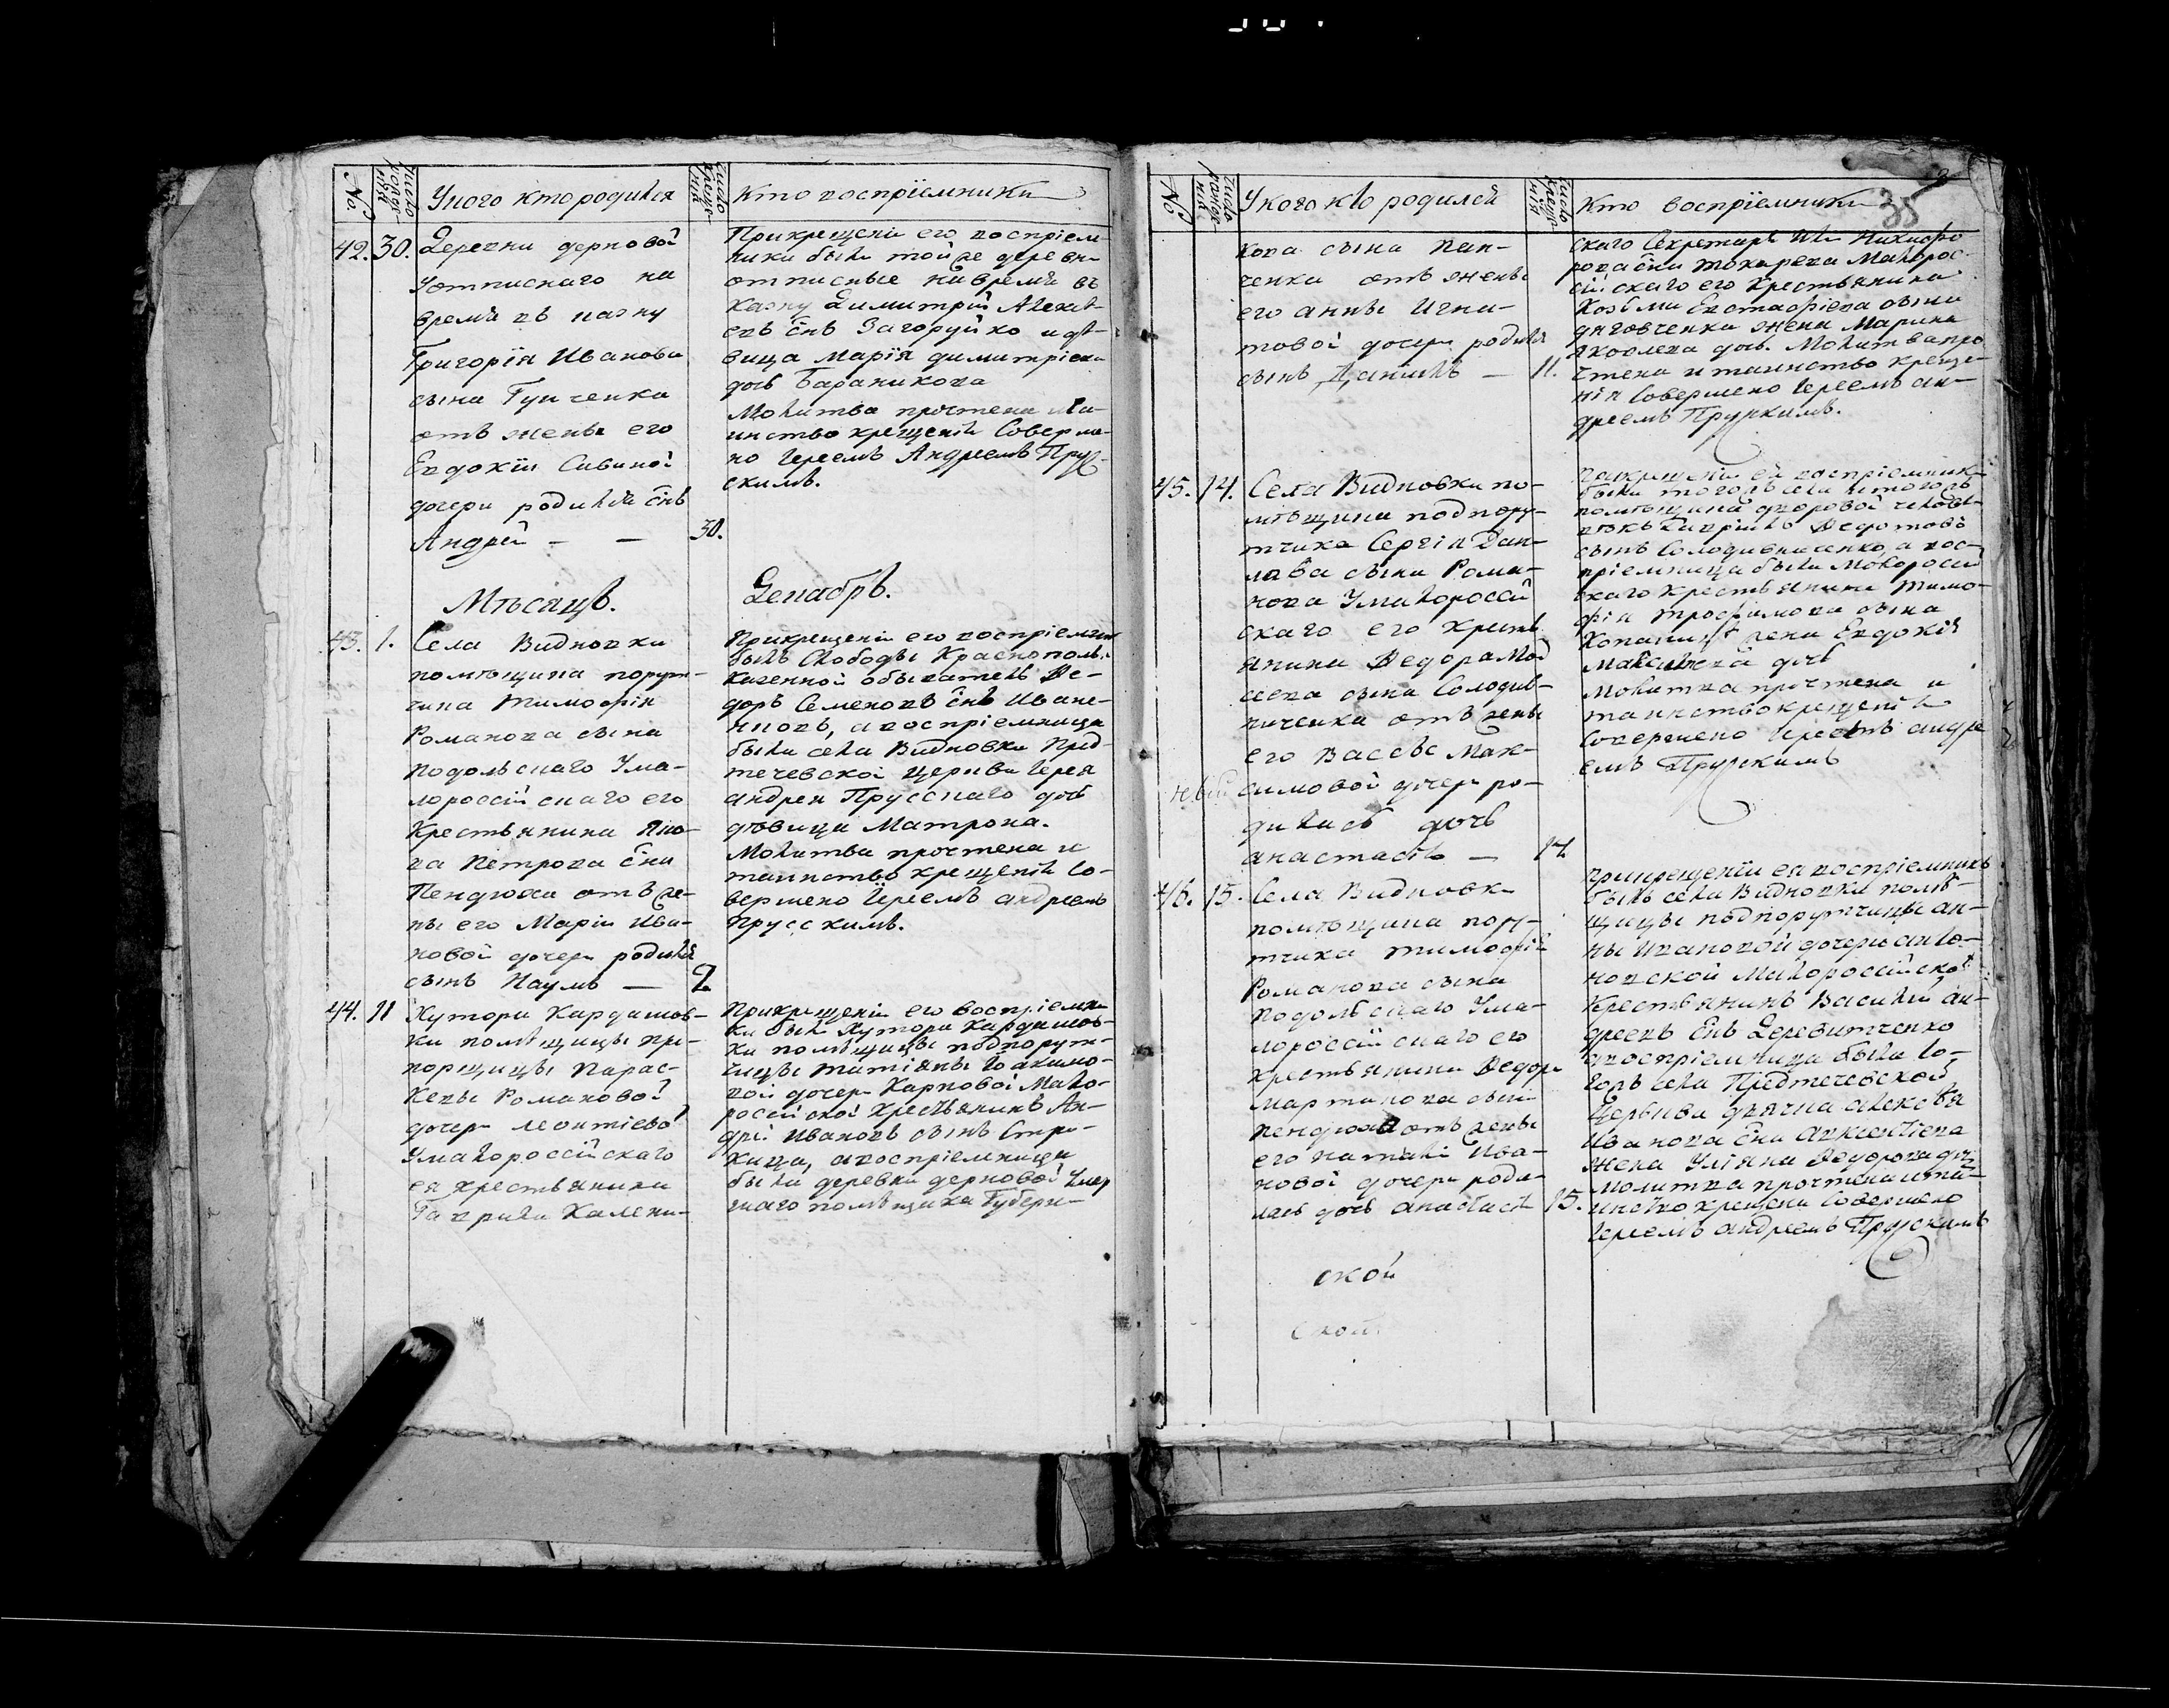 №
Число рожде-
нія
У кого кто родился
Число креще-
нія
Кто воспріемники
42. 30. Деревни дерновой
у отписнаго на
время въ казну
Григорія Иванова
сына Гунченка
отъ жены его
Евдокіи Савиной
дочери родился снъ
Андрей — — 30.
При крещеніи его воспріем-
ники были той же деревни
отписные на время въ
казну Димитрій Алексѣ-
евъ снъ Загоруйко и дѣ-
вица Марія Димитріева
дочь Бараникова
Молитва прочтена и та-
инство крещенія соверше-
но Іереемъ Андреемъ Прус-
скимъ.
Мѣсяцъ. Декабрь.
43. 1. Села Видновки
помѣщика порут-
чика Тимофія
Романова сына
Подольскаго у ма-
лороссійскаго его
крестьянина Яко-
ва Петрова сна
Пендюха отъ же-
ны его Маріи Ива-
новой дочери родился
сынъ Наумъ — 2
При крещеніи его воспріемник
былъ слободы Краснополья
казенной обыватель Фе-
доръ Семеновъ снъ Иване-
нковъ, а воспріемница
была села Видновки Пред-
течевской церкви Іерея
Андрея Прусскаго дочь
дѣвица Матрона.
Молитва прочтена и
таинство крещенія со-
вершено Іереемъ Андреемъ
Прусскимъ.
44. 11 Хутора Кардашов-
ки помѣщицы пра-
порщицы Парас-
кевы Романовой
дочери Леонтіевой
у малороссійскаго
ея крестьянина
Гаврила Калени-
При крещеніи его воспріемни-
ки были хутора Кардашов-
ки помѣщицы подпорут-
чицы Татіаны Іоакимо-
вой дочери Карповой мало-
россійской крестьянинъ Ан-
дрей Ивановъ сынъ Стри-
жица, а воспріемница
была деревни дерновой умер
шаго помѣщика Губерн-
35
№
Число рожде-
нія
У кого кто родился
Число креще-
нія
Кто воспріемники
кова сына Пан-
ченка отъ жены
его Анны Игна-
товой дочери родился
сынъ Даніилъ — 11.
скаго Секретаря Никифо
рова сна Токарева малорос-
сійскаго его крестьянина
Козьмы Евстафіева сына
жена Марина
Яковлева дочь. Молитва про
чтена и таинство креще-
нія совершено Іереемъ Ан-
дреемъ Прусскимъ.
45. 14. Села Видновки по-
мѣщика подпору-
тчика Сергія Дани-
лова сына Рома-
нова у малороссій
скаго его кресть
янина Федора Мой
сеева сына Солодив-
ниченка отъ жены
его Вассы Мак-
симовой дочери ро-
дилась дочь
Анастасія — 14
При крещеніи ея воспріемник
были того жъ села и того жъ
помѣщика дворовой человѣ-
къ Гавріилъ Федотовъ
сынъ Солодивниченко, а вос-
пріемница была малоросій
скаго крестьянина Тимо-
фія Трофимова сына
жена Евдокія
Максимова дочь
Молитва прочтена и
таинство крещенія
совершено Іереемъ Андре
емъ Прусскимъ
46. 15. Села Видновки
помѣщика пору-
тчика Тимофія
Романова сына
Подольскаго у ма-
лороссійскаго его
крестьянина Федора
Мартинова сына
Пендюха отъ жены
его Наталіи Ива-
новой дочери роди-
лась дочь Анастасія 15.
При крещеніи ея воспріемникъ
былъ села Видновки помѣ-
щицы подпорутчицы Ан-
ны Ивановой дочери Анто-
новской малороссійской
крестьянинъ Василій Ан-
дреевъ снъ Деревитченко
а воспріемница была то-
гожъ села Предтечевской
церкви дьячка Алексѣя
Иванова сна
жена Уліяна Федорова дочь
Молитва прочтена и та-
инство крещенія совершено
Іереемъ Андреемъ Прусскимъ
ской
ской